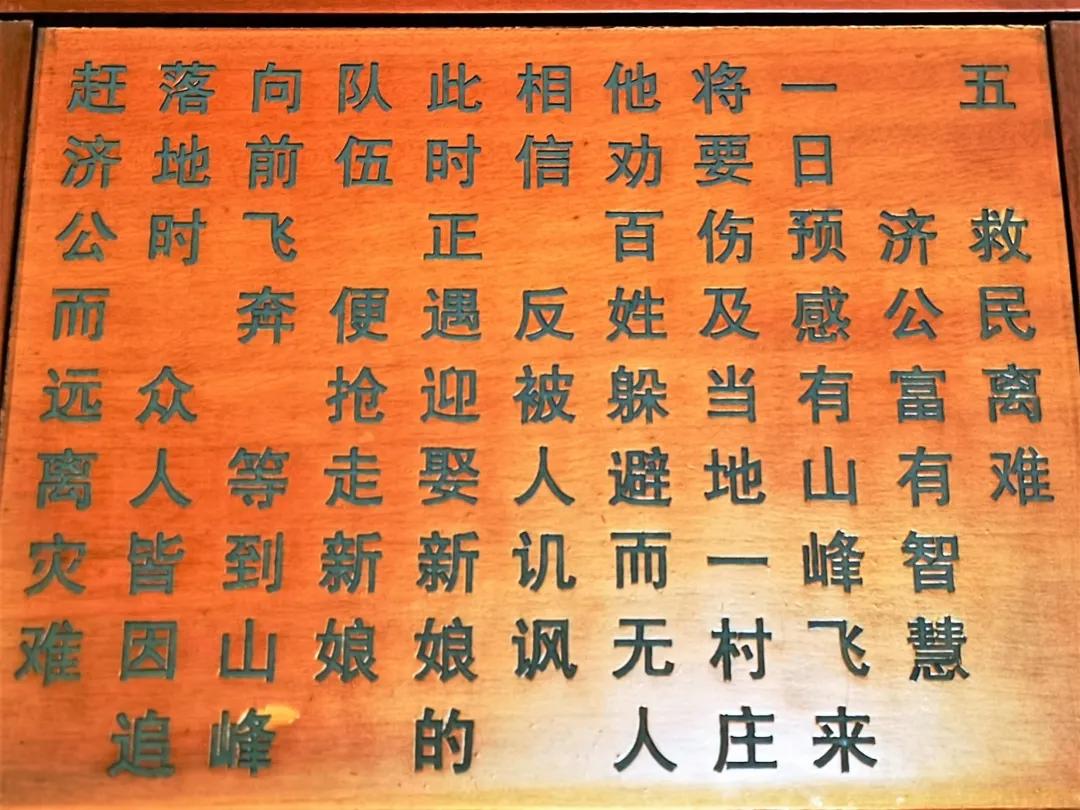 五 救民离难
济公富有智慧
一日预感有山峰飞来
将要伤及当地一村庄
他劝百姓躲避而无人
相信 反被人讥讽
此时正遇迎娶新娘的
队伍 便抢走新娘
向前飞奔 等到山峰
落地时 众人皆因追
赶济公而远离灾难